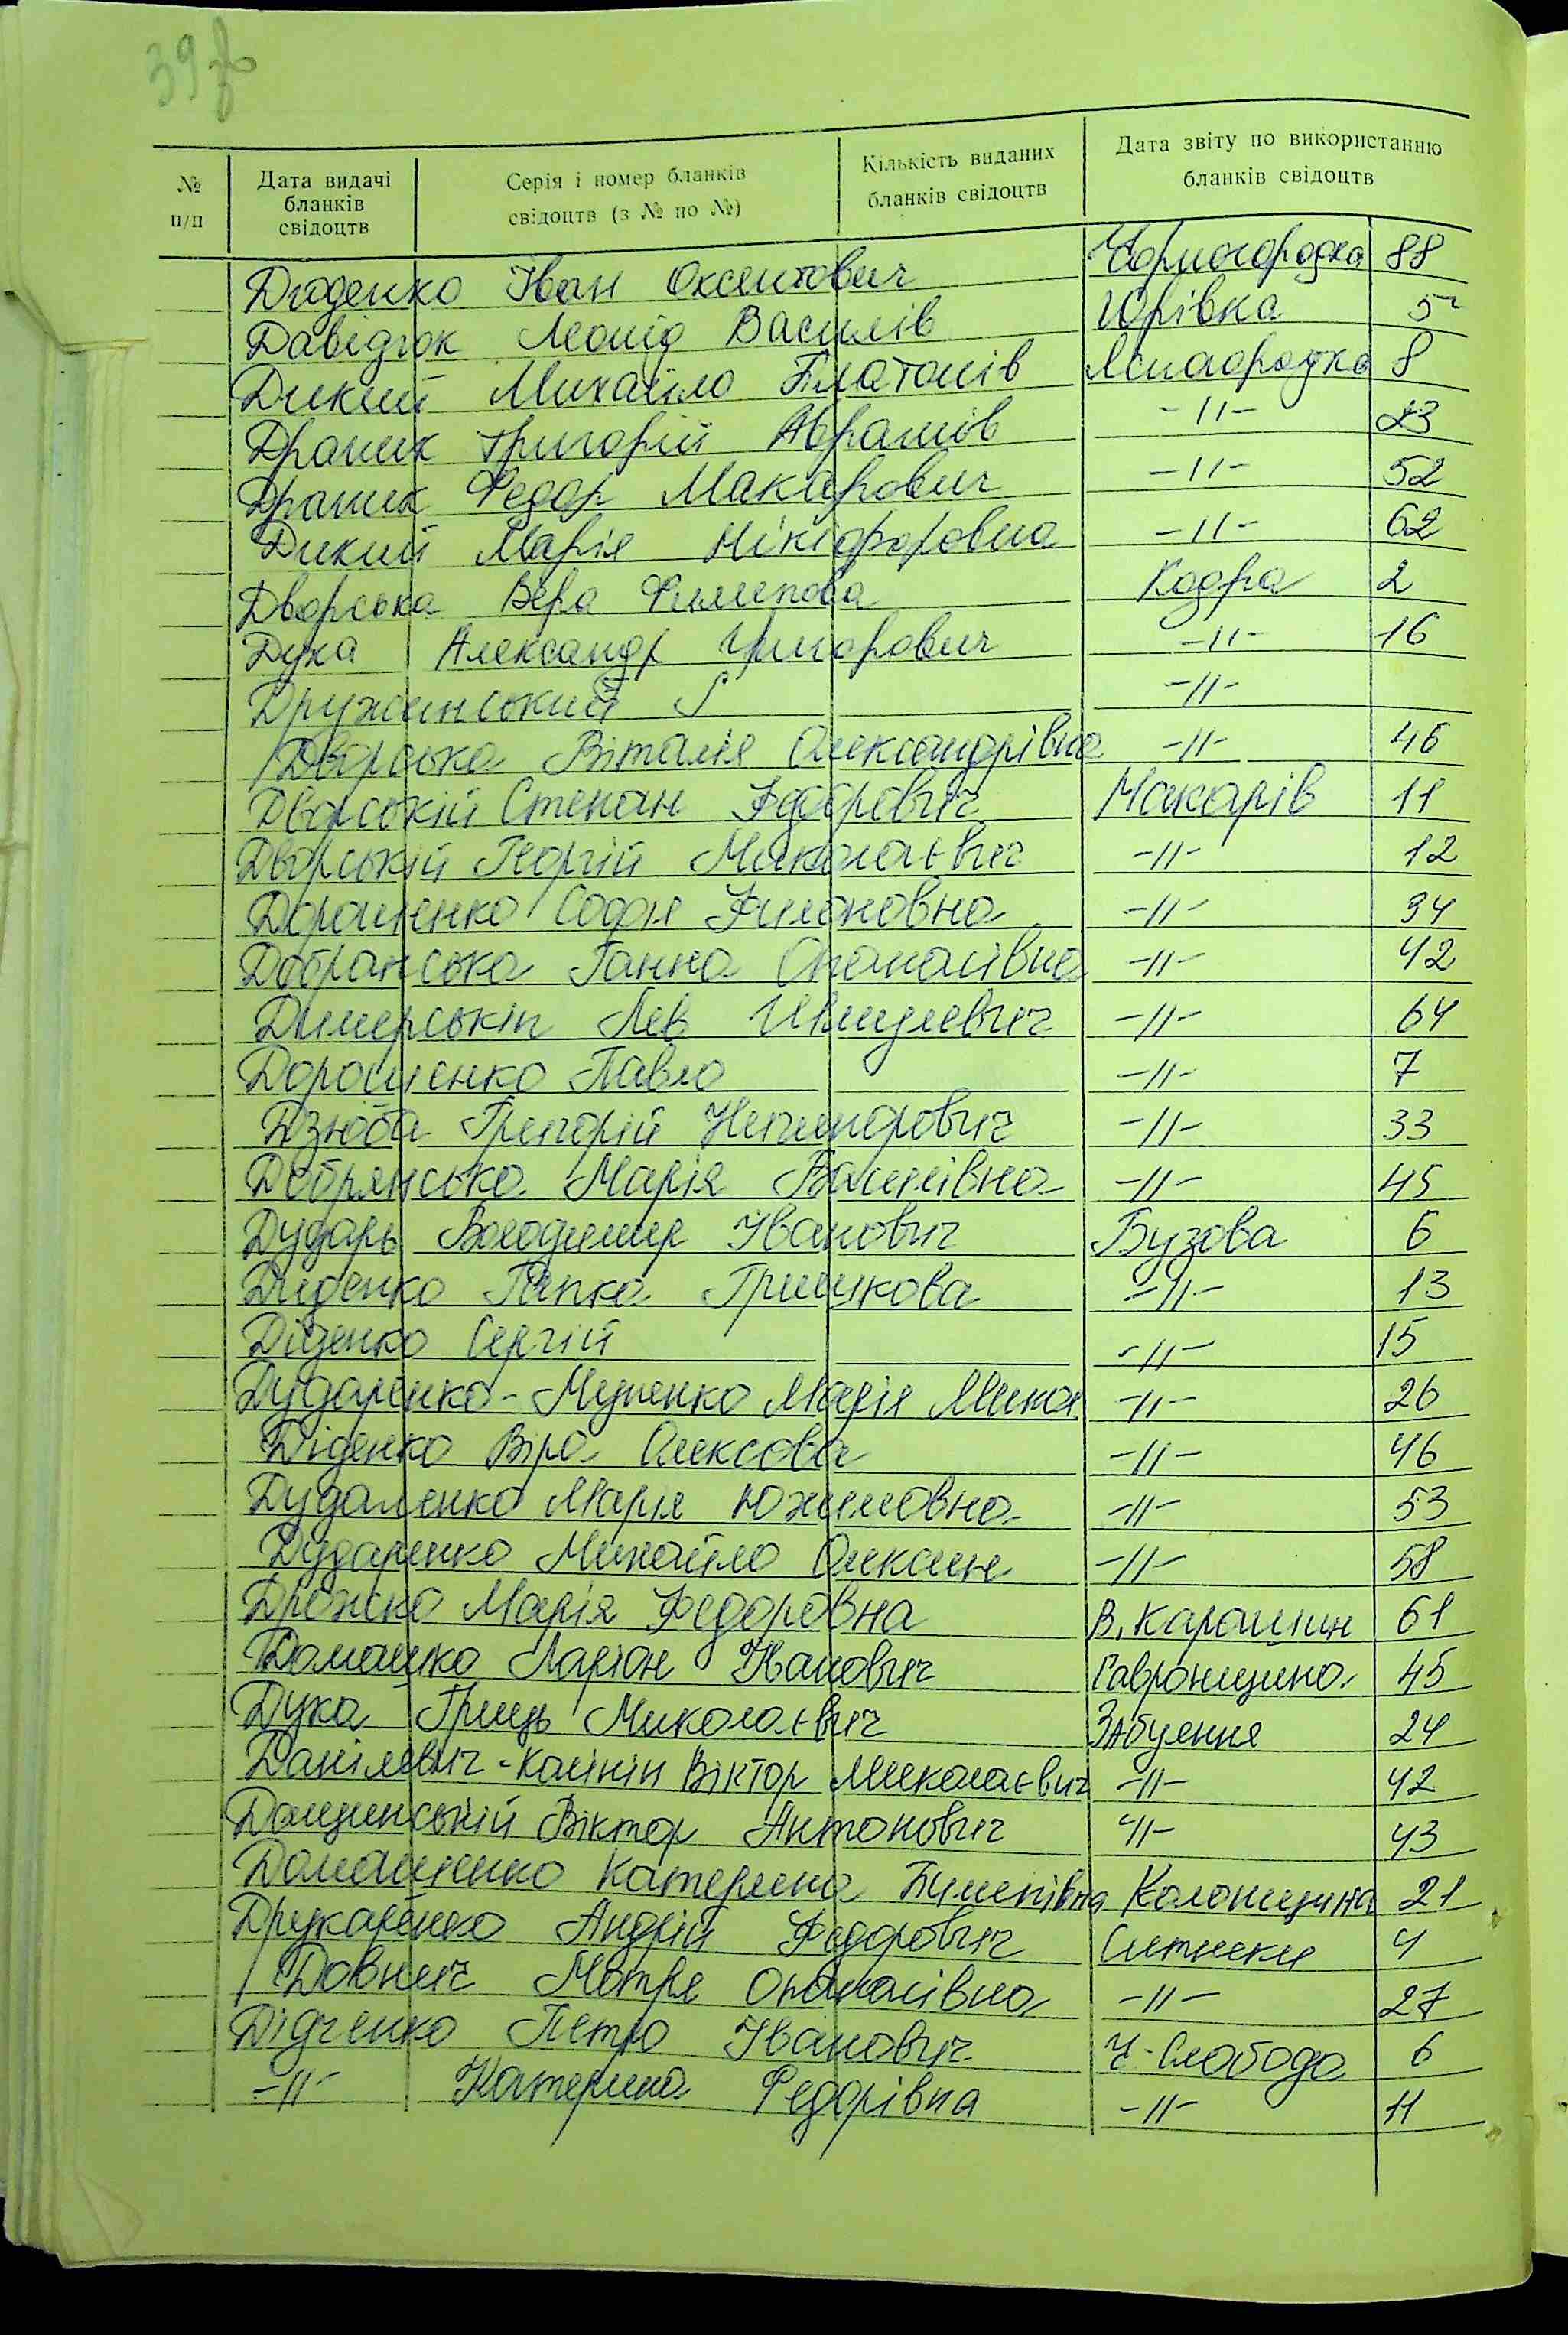 39
№ п/п Дата видачі бланків свідоцтв Серія і номер бланків свідоцтв (з № по №) Кількість виданих бланків свідоцтв Дата звіту по використанню бланків свідоцтв
Діденко Іван Оксентович Чорногородка 88
Давідюк Леонід Василів Юрівка 5
Дикий Михайло Платонів Ясногородка 8
Драник Григорій Аврамів -//- 23
Драник Федор Макарович -//- 52
Дикий Марія Нікіфоровна -//- 62
Дворська Вера Филипова Кодра 2
Дука Александр Григорович -//- 16
Дружинський -//-
Дворська Віталія Олександрівна -//- 46
Дворській Степан Федорович Макарів 11
Дворській Георгій Миколаєвич -//- 12
Дорошенко Софія Филоновна -//- 34
Добранська Ганна Опанасівна -//- 42
Димерскін Лев -//- 64
Дорошенко Павло -//- 7
Дзюба Григорій -//- 33
Добрянська Марія Василівна -//- 45
Дударь Володимир Іванович Бузова 6
Диденко Грицкова -//- 13
Діденко Сергій -//- 15
Дударенко - Муленко Марія Микол. -//- 26
Діденко Віра Олексова -//- 46
Дудаленко Марія Юхимовна -//- 53
Дударенко Михайло -//- 58
Дрожко Марія Федоровна В. Карашин 61
Домашко Ларіон Іванович Гавронщина 45
Дука Гриць Миколаєвич Забуяння 24
Данілевич - Калінін Віктор Миколаєвич -//- 42
Домчинській Віктор Антонович -//- 43
Домашенко Катерина Пилипівна Колонщина 21
Друкаренко Андрій Федорович Ситники 4
Довнич Мотря Опанасівна -//- 27
Дідченко Петро Іванович Ч-Слобода 6
-//- Катерина Федорівна -//- 11